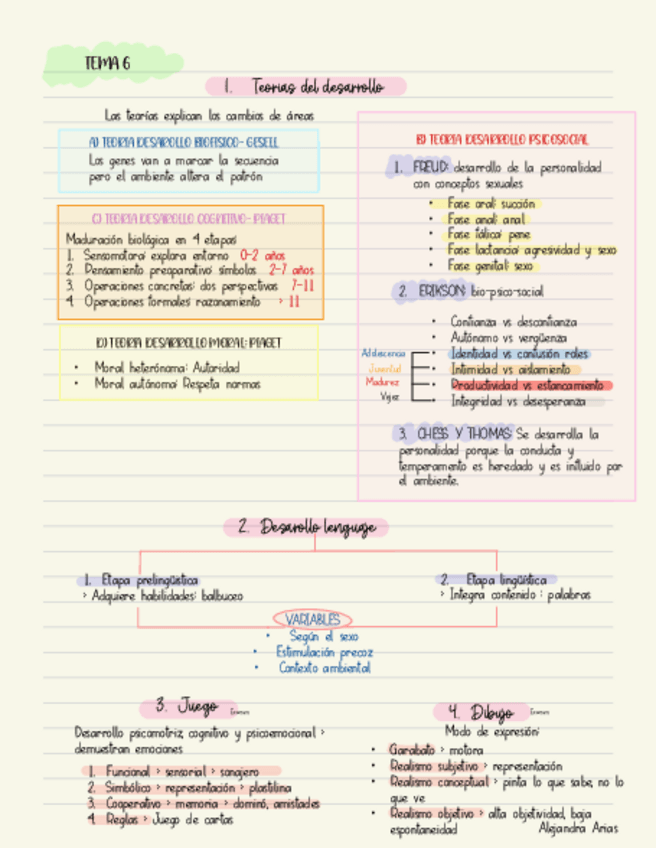 TEMA 6
1. Teorias del desarrollo
Las teorías explican los cambios de áreas
A) TEORIA DESARROLLO BIOFISICO- GESELL
Los genes van a marcar la secuencia
pero el ambiente altera el patrón
C) TEORIA DESARROLLO COGNITIVO- PIAGET
Maduración biológica en 4 etapas:
1. Sensomotora: explora entorno 0-2 años
2. Pensamiento preoparativo: símbolos 2-7 años
3. Operaciones concretas: dos perspectivas 7-11
4. Operaciones formales: razonamiento > 11
D) TEORIA DESARROLLO MORAL: PIAGET
• Moral heterónoma: Autoridad
• Moral autónoma: Respeta normas
B) TEORIA DESARROLLO PSICOSOCIAL
1. FREUD: desarrollo de la personalidad
con conceptos sexuales
• Fase oral: succión
• Fase anal: anal
• Fase fálica: pene
• Fase lactancia: agresividad y sexo
• Fase genital: sexo
2. ERIKSON: bio-psico-social
• Confianza vs desconfianza
• Autónomo vs vergüenza
Adolescencia • Identidad vs confusión roles
Juventud • Intimidad vs aislamiento
Madurez • Productividad vs estancamiento
Vejez • Integridad vs desesperanza
3. CHESS Y THOMAS: Se desarrolla la
personalidad porque la conducta y
temperamento es heredado y es influido por
el ambiente.
2. Desarollo lenguaje
1. Etapa prelingüística
> Adquiere habilidades: balbuceo
2. Etapa lingüística
> Integra contenido : palabras
VARIABLES
• Según el sexo
• Estimulación precoz
• Contexto ambiental
3. Juego
Desarrollo psicomotriz, cognitivo y psicoemocional >
demuestran emociones
1. Funcional > sensorial > sonajero
2. Simbólico > representación > plastilina
3. Cooperativo > memoria > dominó, amistades
4. Reglas > Juego de cartas
4. Dibujo
Modo de expresión:
• Garabato > motora
• Realismo subjetivo > representación
• Realismo conceptual > pinta lo que sabe, no lo
que ve
• Realismo objetivo > alta objetividad, baja
espontaneidad
Alejandra Arias